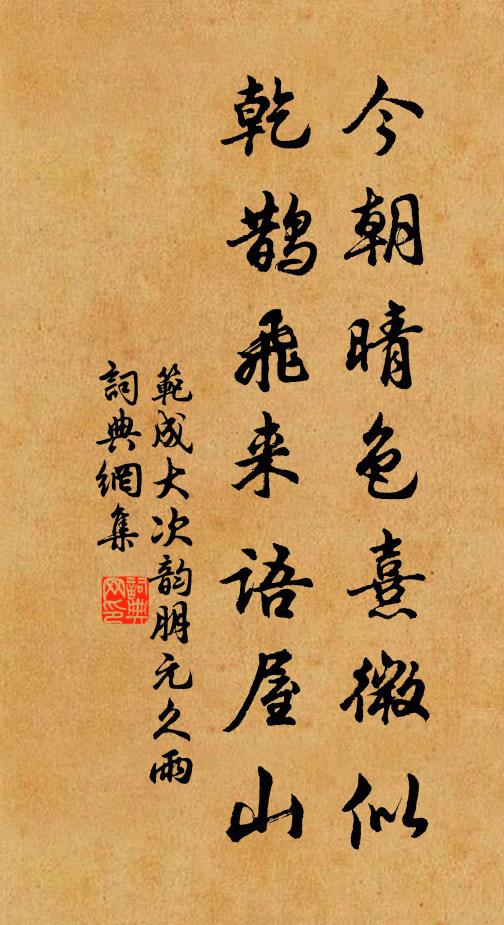 今朝晴色熹微似
乾鹊飛来語屋山
範成大次韵朋元久雨
詞典網集
詞典網印